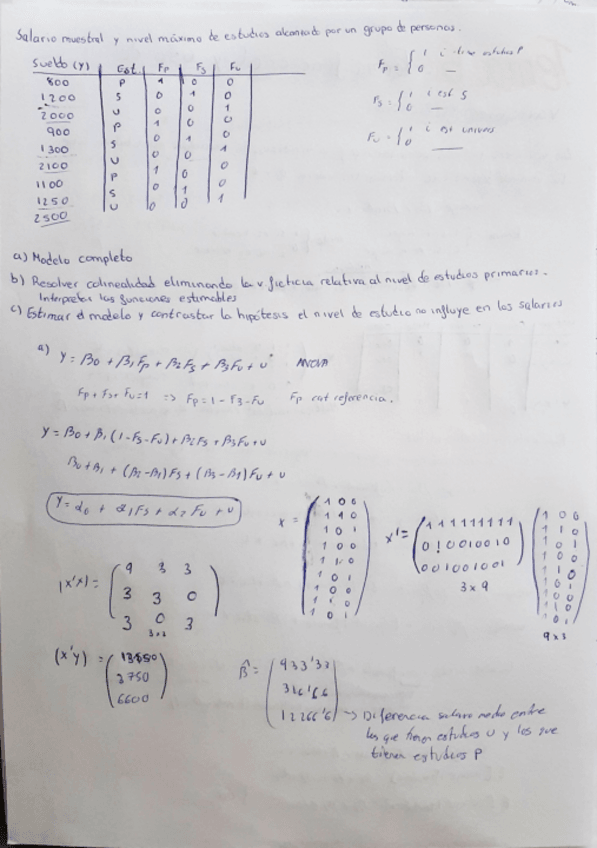 Salario muestral y nivel máximo de estudios alcanzado por un grupo de personas.
Sueldo (Y) Est. Fp Fs Fu
800 P 1 0 0
1200 S 0 1 0
2000 U 0 0 1
900 P 1 0 0
1300 S 0 1 0
2100 U 0 0 1
1100 P 1 0 0
1250 S 0 1 0
2500 U 0 0 1
Fp = { 1 i tiene estudios P
0 —
Fs = { 1 i est S
0 —
Fu = { 1 i est univers
0 —
a) Modelo completo
b) Resolver colinealidad eliminando la v ficticia relativa al nivel de estudios primarios.
Interpretar las funciones estimables
c) Estimar el modelo y contrastar la hipótesis el nivel de estudio no influye en los salarios
a) Y = β0 + β1Fp + β2Fs + β3Fu + u ANOVA
Fp + Fs + Fu = 1 => Fp = 1 - Fs - Fu Fp cat referencia.
Y = β0 + β1 (1 - Fs - Fu) + β2Fs + β3Fu + u
β0 + β1 + (β2 - β1) Fs + (β3 - β1) Fu + u
Y = α0 + α1Fs + α2 Fu + u
X = ( 1 0 0
1 1 0
1 0 1
1 0 0
1 1 0
1 0 1
1 0 0
1 1 0
1 0 1 )
X' = ( 1 1 1 1 1 1 1 1 1
0 1 0 0 1 0 0 1 0
0 0 1 0 0 1 0 0 1 )
3 x 9
( 1 0 0
1 1 0
1 0 1
1 0 0
1 1 0
1 0 1
1 0 0
1 1 0
1 0 1 )
9 x 3
|X'X| = ( 9 3 3
3 3 0
3 0 3 )
3 x 3
(X'Y) = ( 13150
3750
6600 )
β̂ = ( 933'33
316'66
1266'6 ) → Diferencia salario medio entre
los que tienen estudios U y los que
tienen estudios P